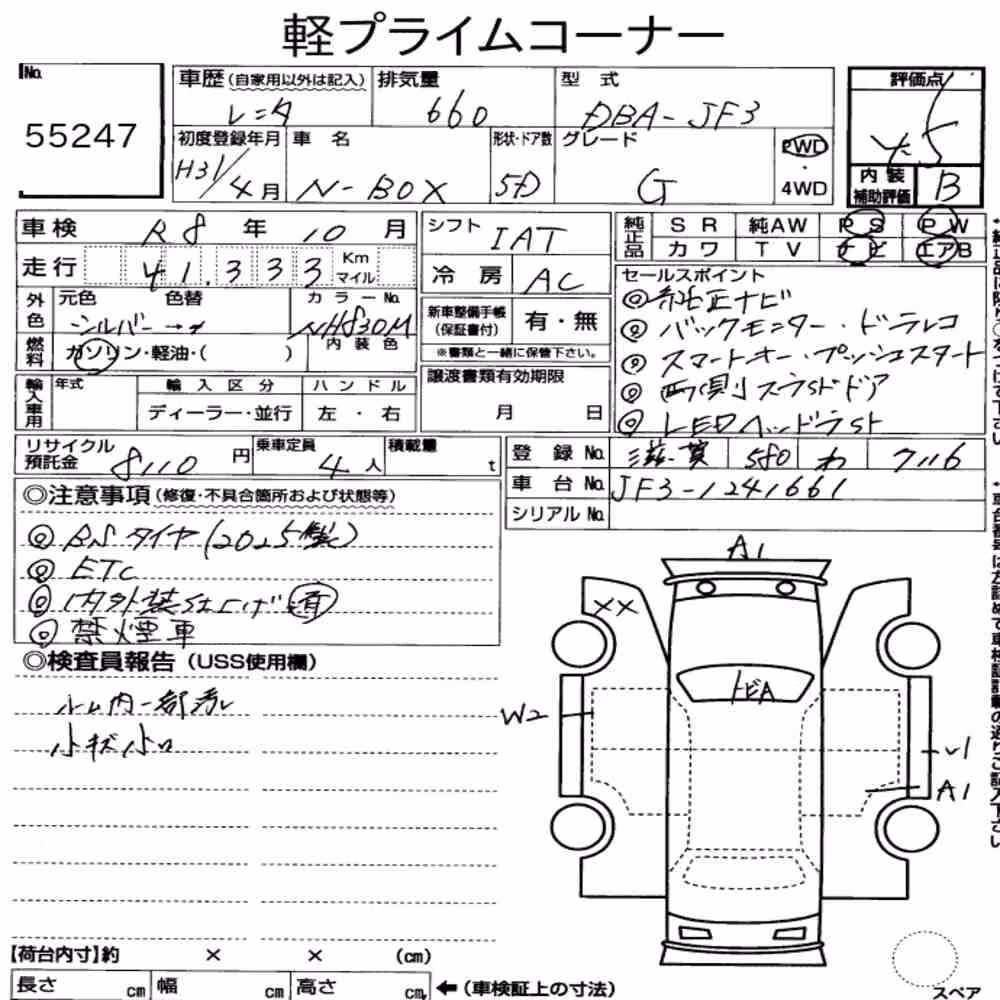 軽プライムコーナー
No.
55247
車歴(自家用以外は記入)
レンタ
排気量
660
型 式
DBA-JF3
評価点
4.5
初度登録年月
H31/4月
車 名
N-BOX
形状・ドア数
5D
グレード
G
2WD
・
4WD
内 装
補助評価
B
車検 R8 年 10 月
走行 41,333 Km
マイル
シフト IAT
冷 房 AC
純正品
S R 純AW P S P W
カ ワ T V ナ ビ エアB
外色
元色 色替
シルバー→
カラーNo.
NH830M
内 装 色
燃料
ガソリン・軽油・( )
新車整備手帳
(保証書付)
有・無
※書類と一緒に保管下さい。
セールスポイント
◎純正ナビ
◎バックモニター・ドラレコ
◎スマートキー・プッシュスタート
◎両側スライドドア
◎LEDヘッドライト
輸入車用
年式
輸 入 区 分
ディーラー・並行
ハ ン ド ル
左 ・ 右
譲渡書類有効期限
月 日
リサイクル
預託金
8110 円
乗車定員
4人
積載量
t
登 録 No. 滋賀 580 わ 7116
車 台 No. JF3-1241661
シリアル No.
◎注意事項(修復・不具合箇所および状態等)
◎BSタイヤ(2025製)
◎ETC
◎内外装仕上げ済
◎禁煙車
◎検査員報告(USS使用欄)
ルーム内一部汚れ
小キズ小凹
A1
XX
トビA
W2
U1
A1
【荷台内寸】約 × × (cm)
長さ cm 幅 cm 高さ cm
←(車検証上の寸法)
スペア